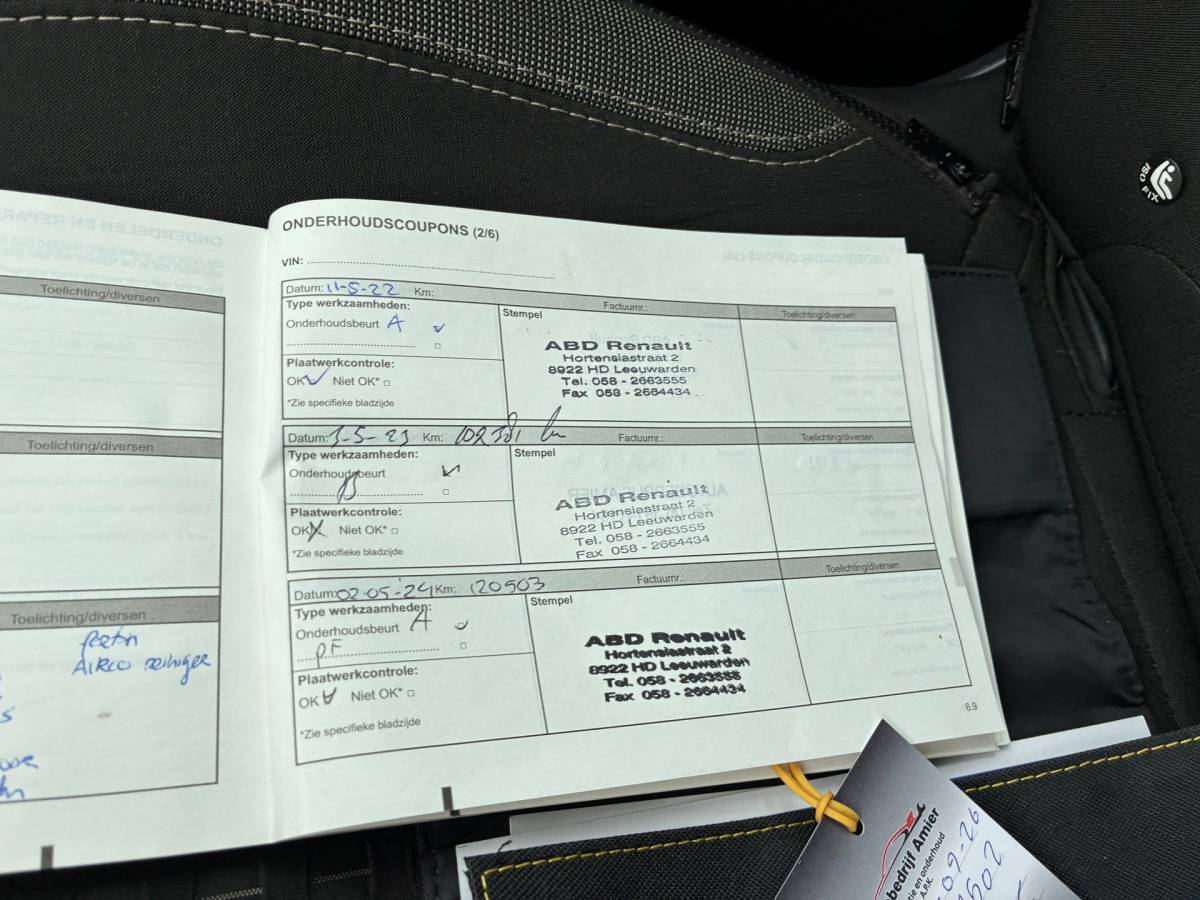 Toelichting/diversen
Toelichting/diversen
Toelichting/diversen
AIRCO reiniger
ONDERHOUDSCOUPONS (2/6)
VIN:
Datum: 11-5-22 Km: Factuurnr.: Toelichting/diversen
Type werkzaamheden:
Onderhoudsbeurt A
Plaatwerkcontrole:
OK Niet OK*
*Zie specifieke bladzijde
Stempel
ABD Renault
Hortensiastraat 2
8922 HD Leeuwarden
Tel. 058 - 2663555
Fax 058 - 2664434
Datum: 3-5-23 Km: 102381 km Factuurnr.: Toelichting/diversen
Type werkzaamheden:
Onderhoudsbeurt
B
Plaatwerkcontrole:
OK Niet OK*
*Zie specifieke bladzijde
Stempel
ABD Renault
Hortensiastraat 2
8922 HD Leeuwarden
Tel. 058 - 2663555
Fax 058 - 2664434
Datum: 02-05-'24 Km: 120503 Factuurnr.: Toelichting/diversen
Type werkzaamheden:
Onderhoudsbeurt A
PF
Plaatwerkcontrole:
OK Niet OK*
*Zie specifieke bladzijde
Stempel
ABD Renault
Hortensiastraat 2
8922 HD Leeuwarden
Tel. 058 - 2663555
Fax 058 - 2664434
6.9
ISO FIX
bedrijf Amier
ie en onderhoud
A.P.K.
09-26